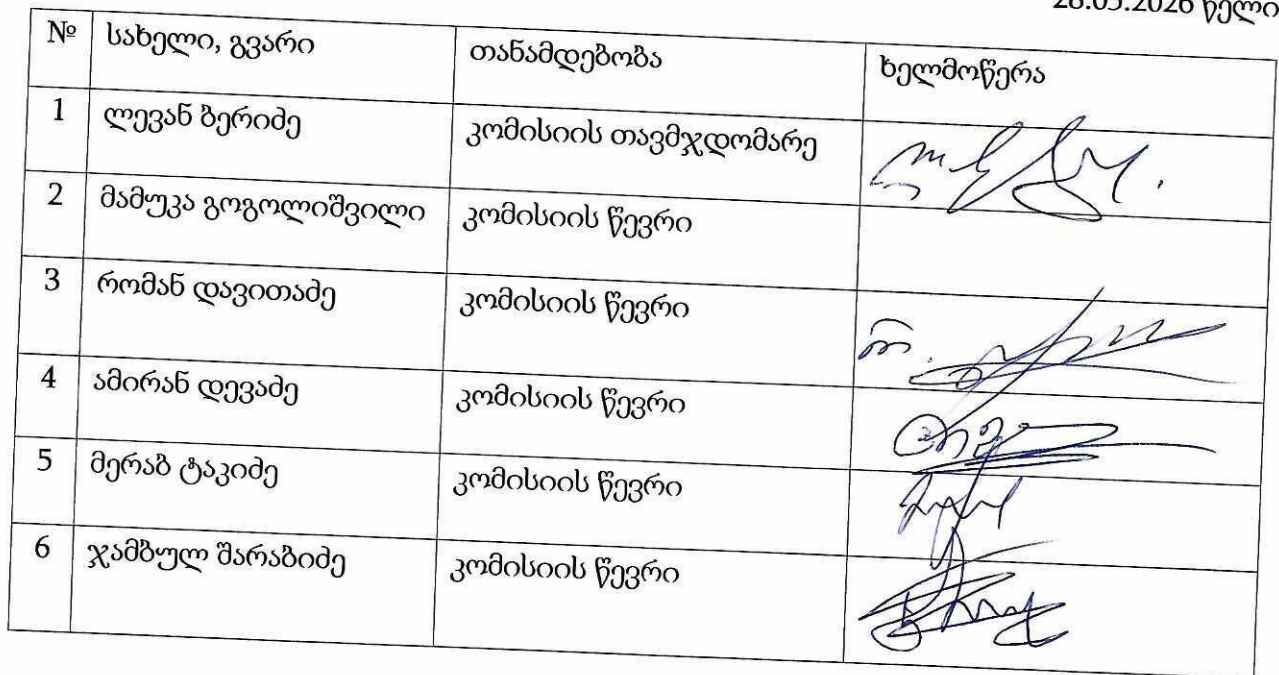 28.05.2026 წელი
№ სახელი, გვარი თანამდებობა ხელმოწერა
1 ლევან ბერიძე კომისიის თავმჯდომარე
2 მამუკა გოგოლიშვილი კომისიის წევრი
3 რომან დავითაძე კომისიის წევრი
4 ამირან დევაძე კომისიის წევრი
5 მერაბ ტაკიძე კომისიის წევრი
6 ჯამბულ შარაბიძე კომისიის წევრი